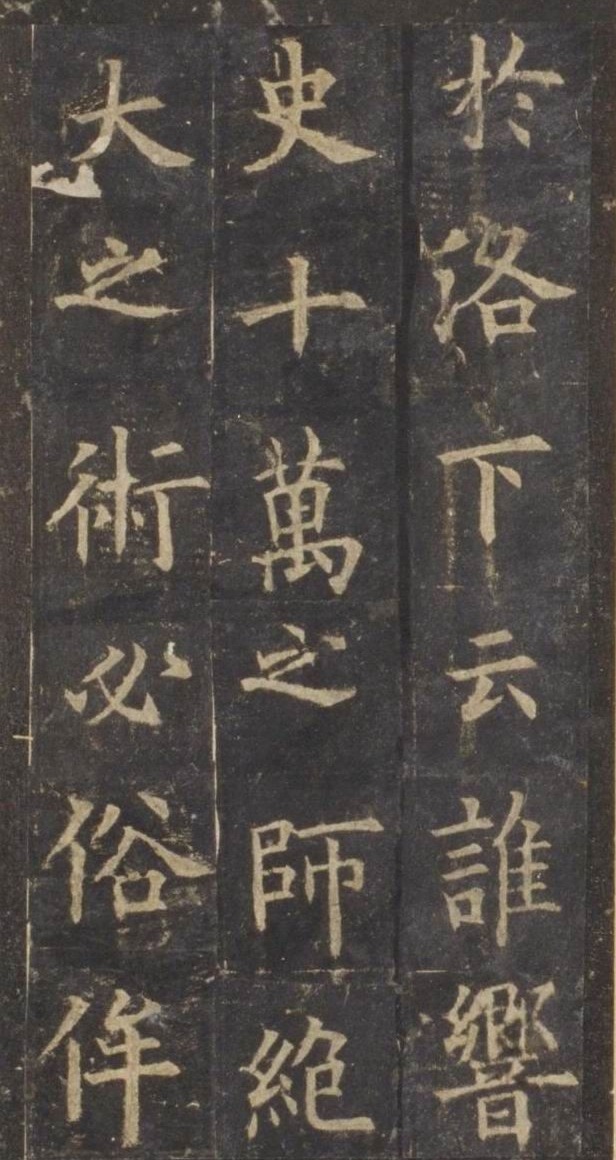 於洛下云誰響
史十萬之師絶
大之術必俗侔